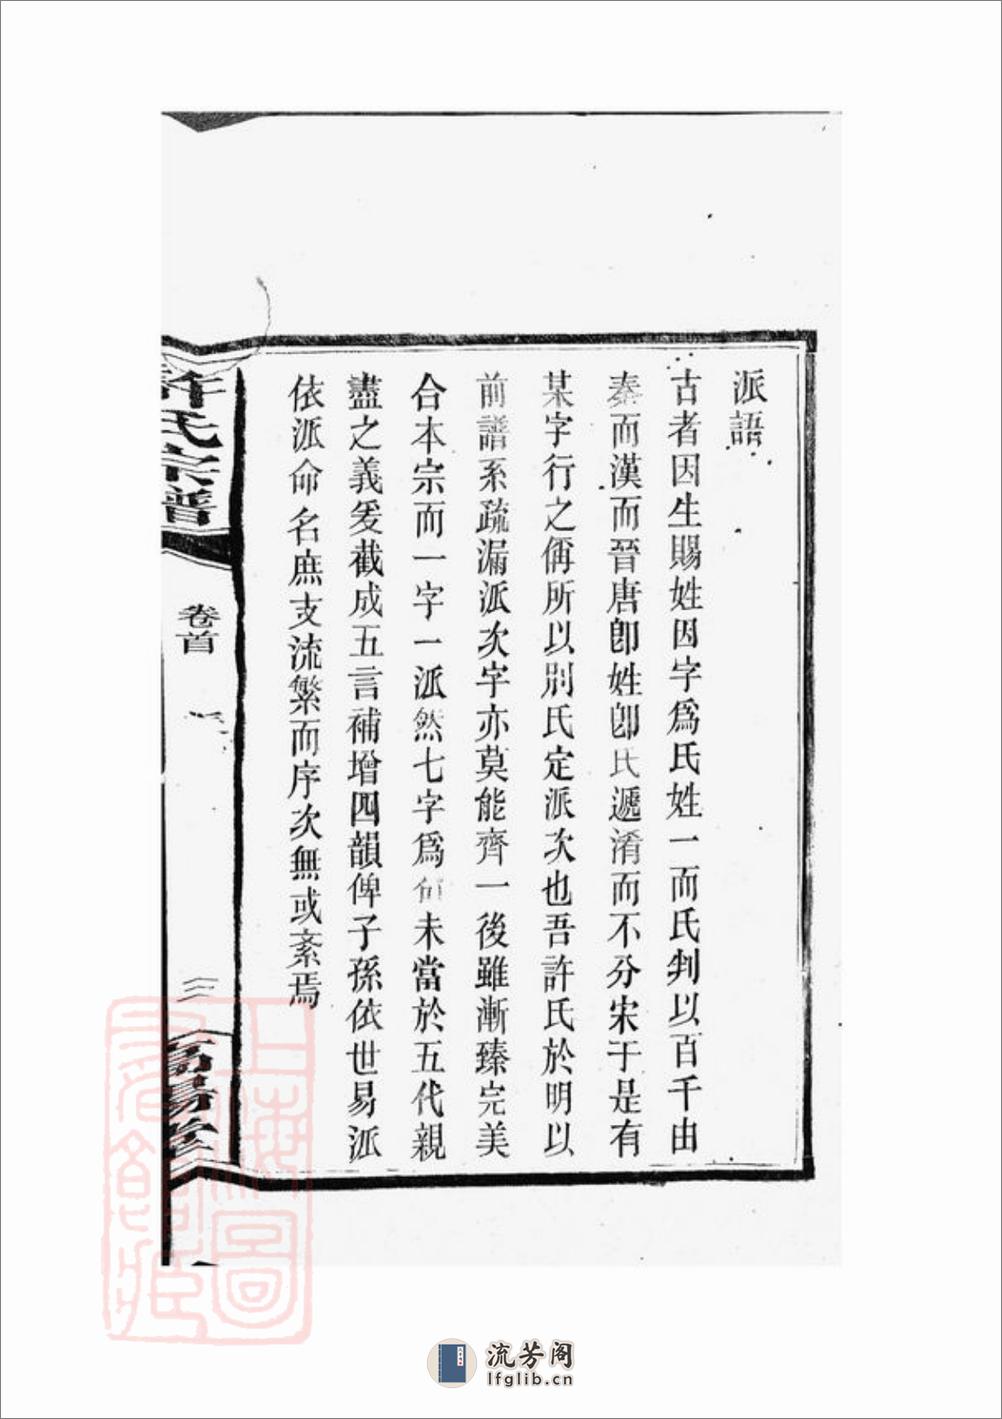 派語
古者因生賜姓因字爲氏姓一而氏判以百千由
秦而漢而晉唐卽姓卽氏遞淆而不分宋于是有
某字行之偁所以別氏定派次也吾許氏於明以
前譜系疏漏派次字亦莫能齊一後雖漸臻完美
合本宗而一字一派然七字爲句未當於五代親
盡之義爰截成五言補增四韻俾子孫依世易派
依派命名庶支流繁而序次無或紊焉
許氏宗譜
卷首
三
上海圖
書館藏
流芳阁
lfglib.cn